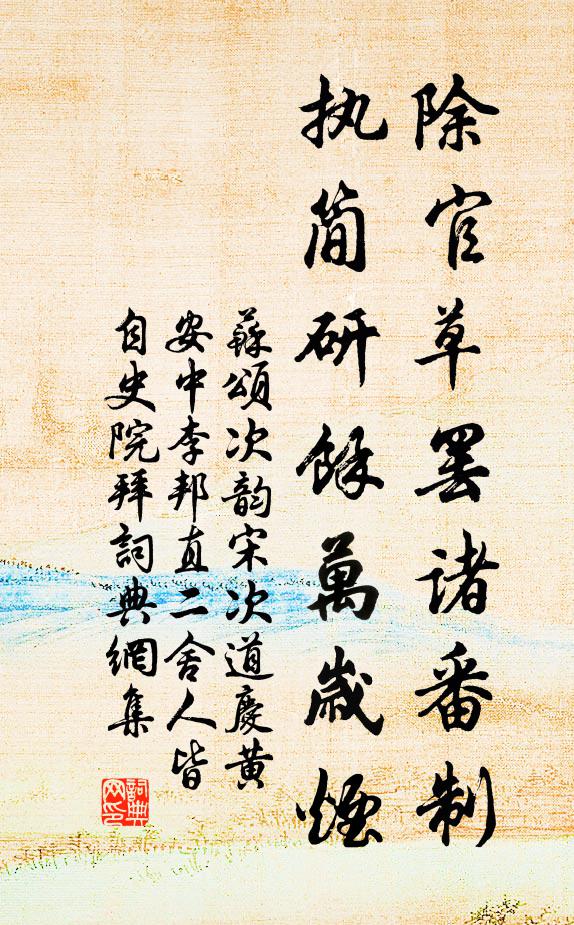 除官草罢诸番制
执简研馀萬歳煙
蘇頌次韵宋次道慶黄
安中李邦直二舍人皆
自史院拜詞典網集
詞典网印